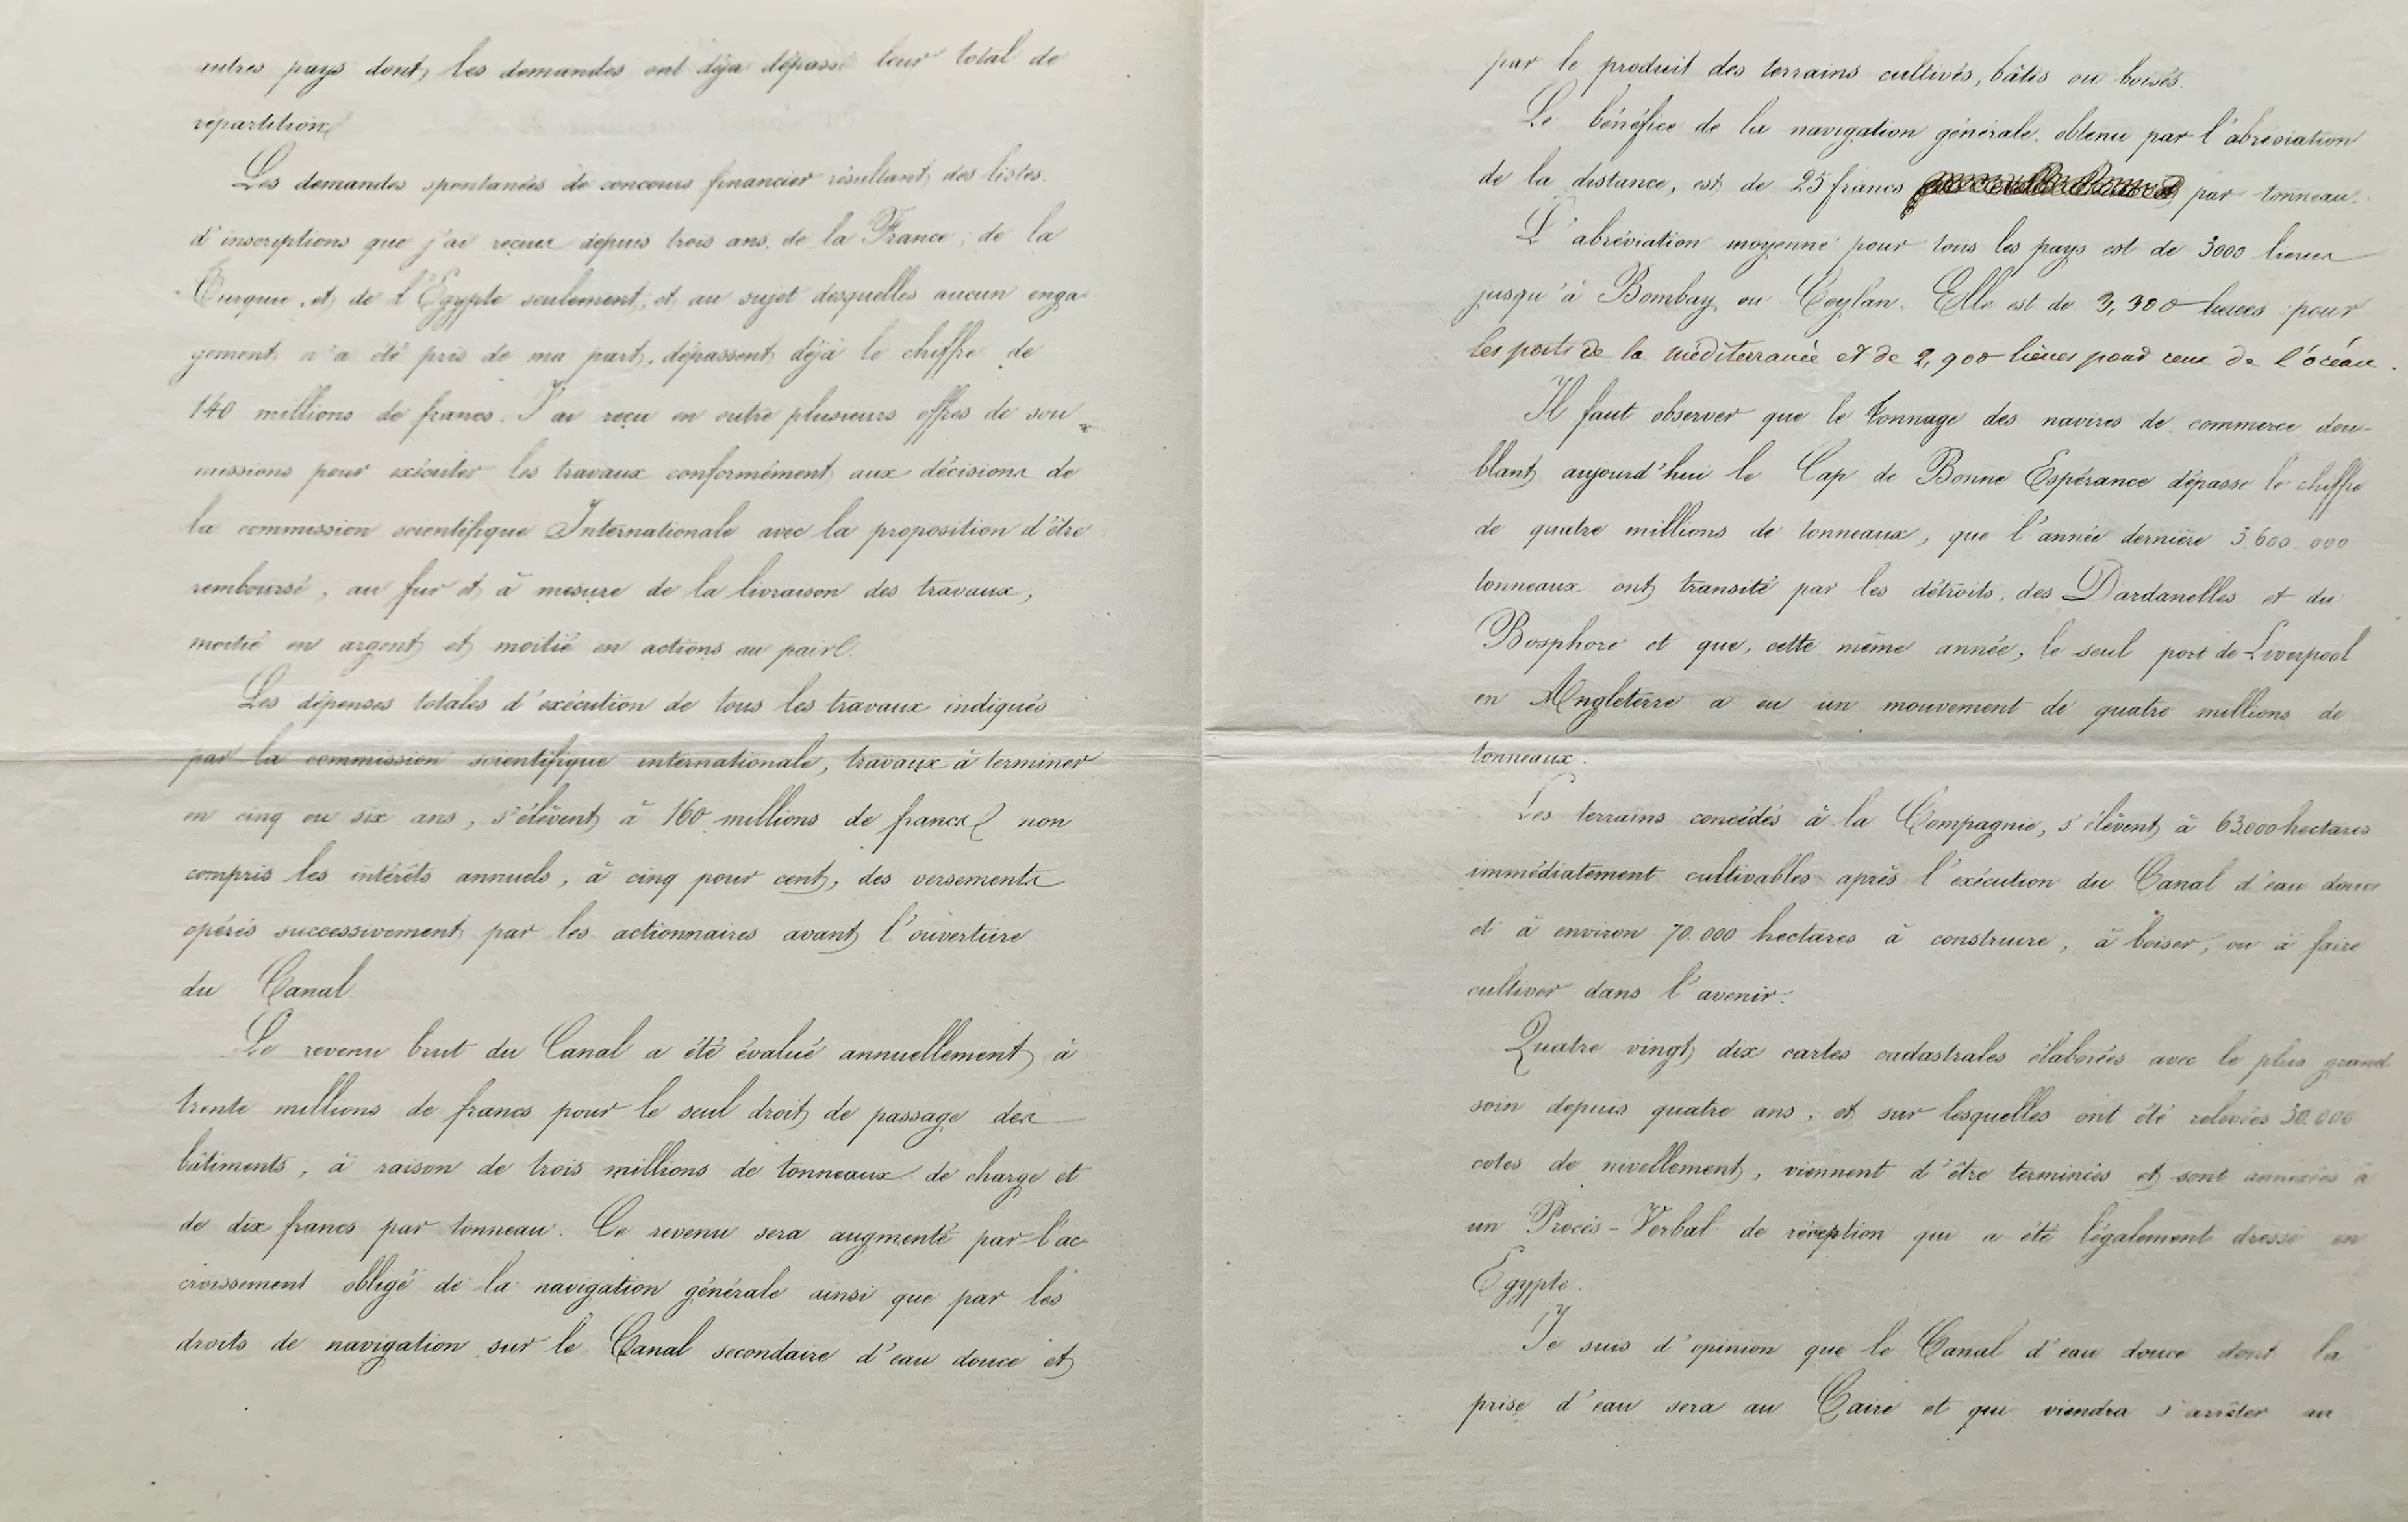 autres pays dont les demandes ont déja dépassé leur total de
répartition.
Les demandes spontanées de concours financier résultant des listes
d'inscriptions que j'ai reçues depuis trois ans, de la France, de la
Turquie, et de l'Égypte seulement, et au sujet desquelles aucun enga
gement n'a été pris de ma part, dépassent déjà le chiffre de
140 millions de francs. J'ai reçu en outre plusieurs offres de sou
missions pour exécuter les travaux conformément aux décisions de
la commission scientifique Internationale avec la proposition d'être
remboursé, au fur et à mesure de la livraison des travaux,
moitié en argent et moitié en actions au pair.
Les dépenses totales d'exécution de tous les travaux indiqués
par la commission scientifique internationale, travaux à terminer
en cinq ou six ans, s'élèvent à 160 millions de francs non
compris les intérêts annuels, à cinq pour cent, des versements
opérés successivement par les actionnaires avant l'ouverture
du Canal.
Le revenu brut du Canal a été évalué annuellement à
trente millions de francs pour le seul droit de passage des
bâtiments, à raison de trois millions de tonneaux de charge et
de dix francs par tonneau. Ce revenu sera augmenté par l'ac
croissement obligé de la navigation générale ainsi que par les
droits de navigation sur le Canal secondaire d'eau douce et
par le produit des terrains cultivés, bâtis ou boisés.
Le bénéfice de la navigation générale, obtenu par l'abréviation
de la distance, est de 25 francs par tonneau.
L'abréviation moyenne pour tous les pays est de 3000 lieues
jusqu'à Bombay ou Ceylan. Elle est de 3,300 lieues pour
les ports de la méditerranée et de 2,900 lieues pour ceux de l'océan.
Il faut observer que le tonnage des navires de commerce dou-
blant aujourd'hui le Cap de Bonne Espérance dépasse le chiffre
de quatre millions de tonneaux, que l'année dernière 3.600.000
tonneaux ont transité par les détroits, des Dardanelles et du
Bosphore et que, cette même année, le seul port de Liverpool
en Angleterre a eu un mouvement de quatre millions de
tonneaux.
Les terrains concédés à la Compagnie, s'élèvent à 63.000 hectares
immédiatement cultivables après l'exécution du Canal d'eau douce
et à environ 70.000 hectares à construire, à boiser, ou à faire
cultiver dans l'avenir.
Quatre vingt dix cartes cadastrales élaborées avec le plus grand
soin depuis quatre ans, et sur lesquelles ont été relevées 30.000
cotes de nivellement, viennent d'être terminées et sont annexées à
un Procès-Verbal de réception qui a été légalement dressé en
Egypte.
Je suis d'opinion que le Canal d'eau douce dont la
prise d'eau sera au Caire et qui viendra s'arrêter au